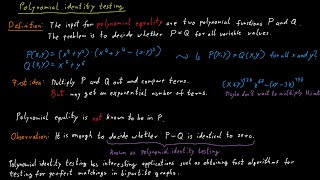 Polynomial identity testing
Definition: The input for polynomial equality are two polynomial functions P and Q.
The problem is to decide whether P=Q for all variable values.
P(x,y) = (x²+y²) · (x⁴+y⁴ - (x·y)²)
Q(x,y) = x⁶+y⁶
Is P(x,y) = Q(x,y) for all x and y?
First idea: Multiply P and Q out and compare terms.
But may get an exponential number of terms.
Maybe don't want to multiply this out
Polynomial equality is not known to be in P.
Observation: It is enough to decide whether P-Q is identical to zero.
Known as polynomial identity testing
Polynomial identity testing has interesting applications such as obtaining fast algorithms for
testing for perfect matchings in bipartite graphs.